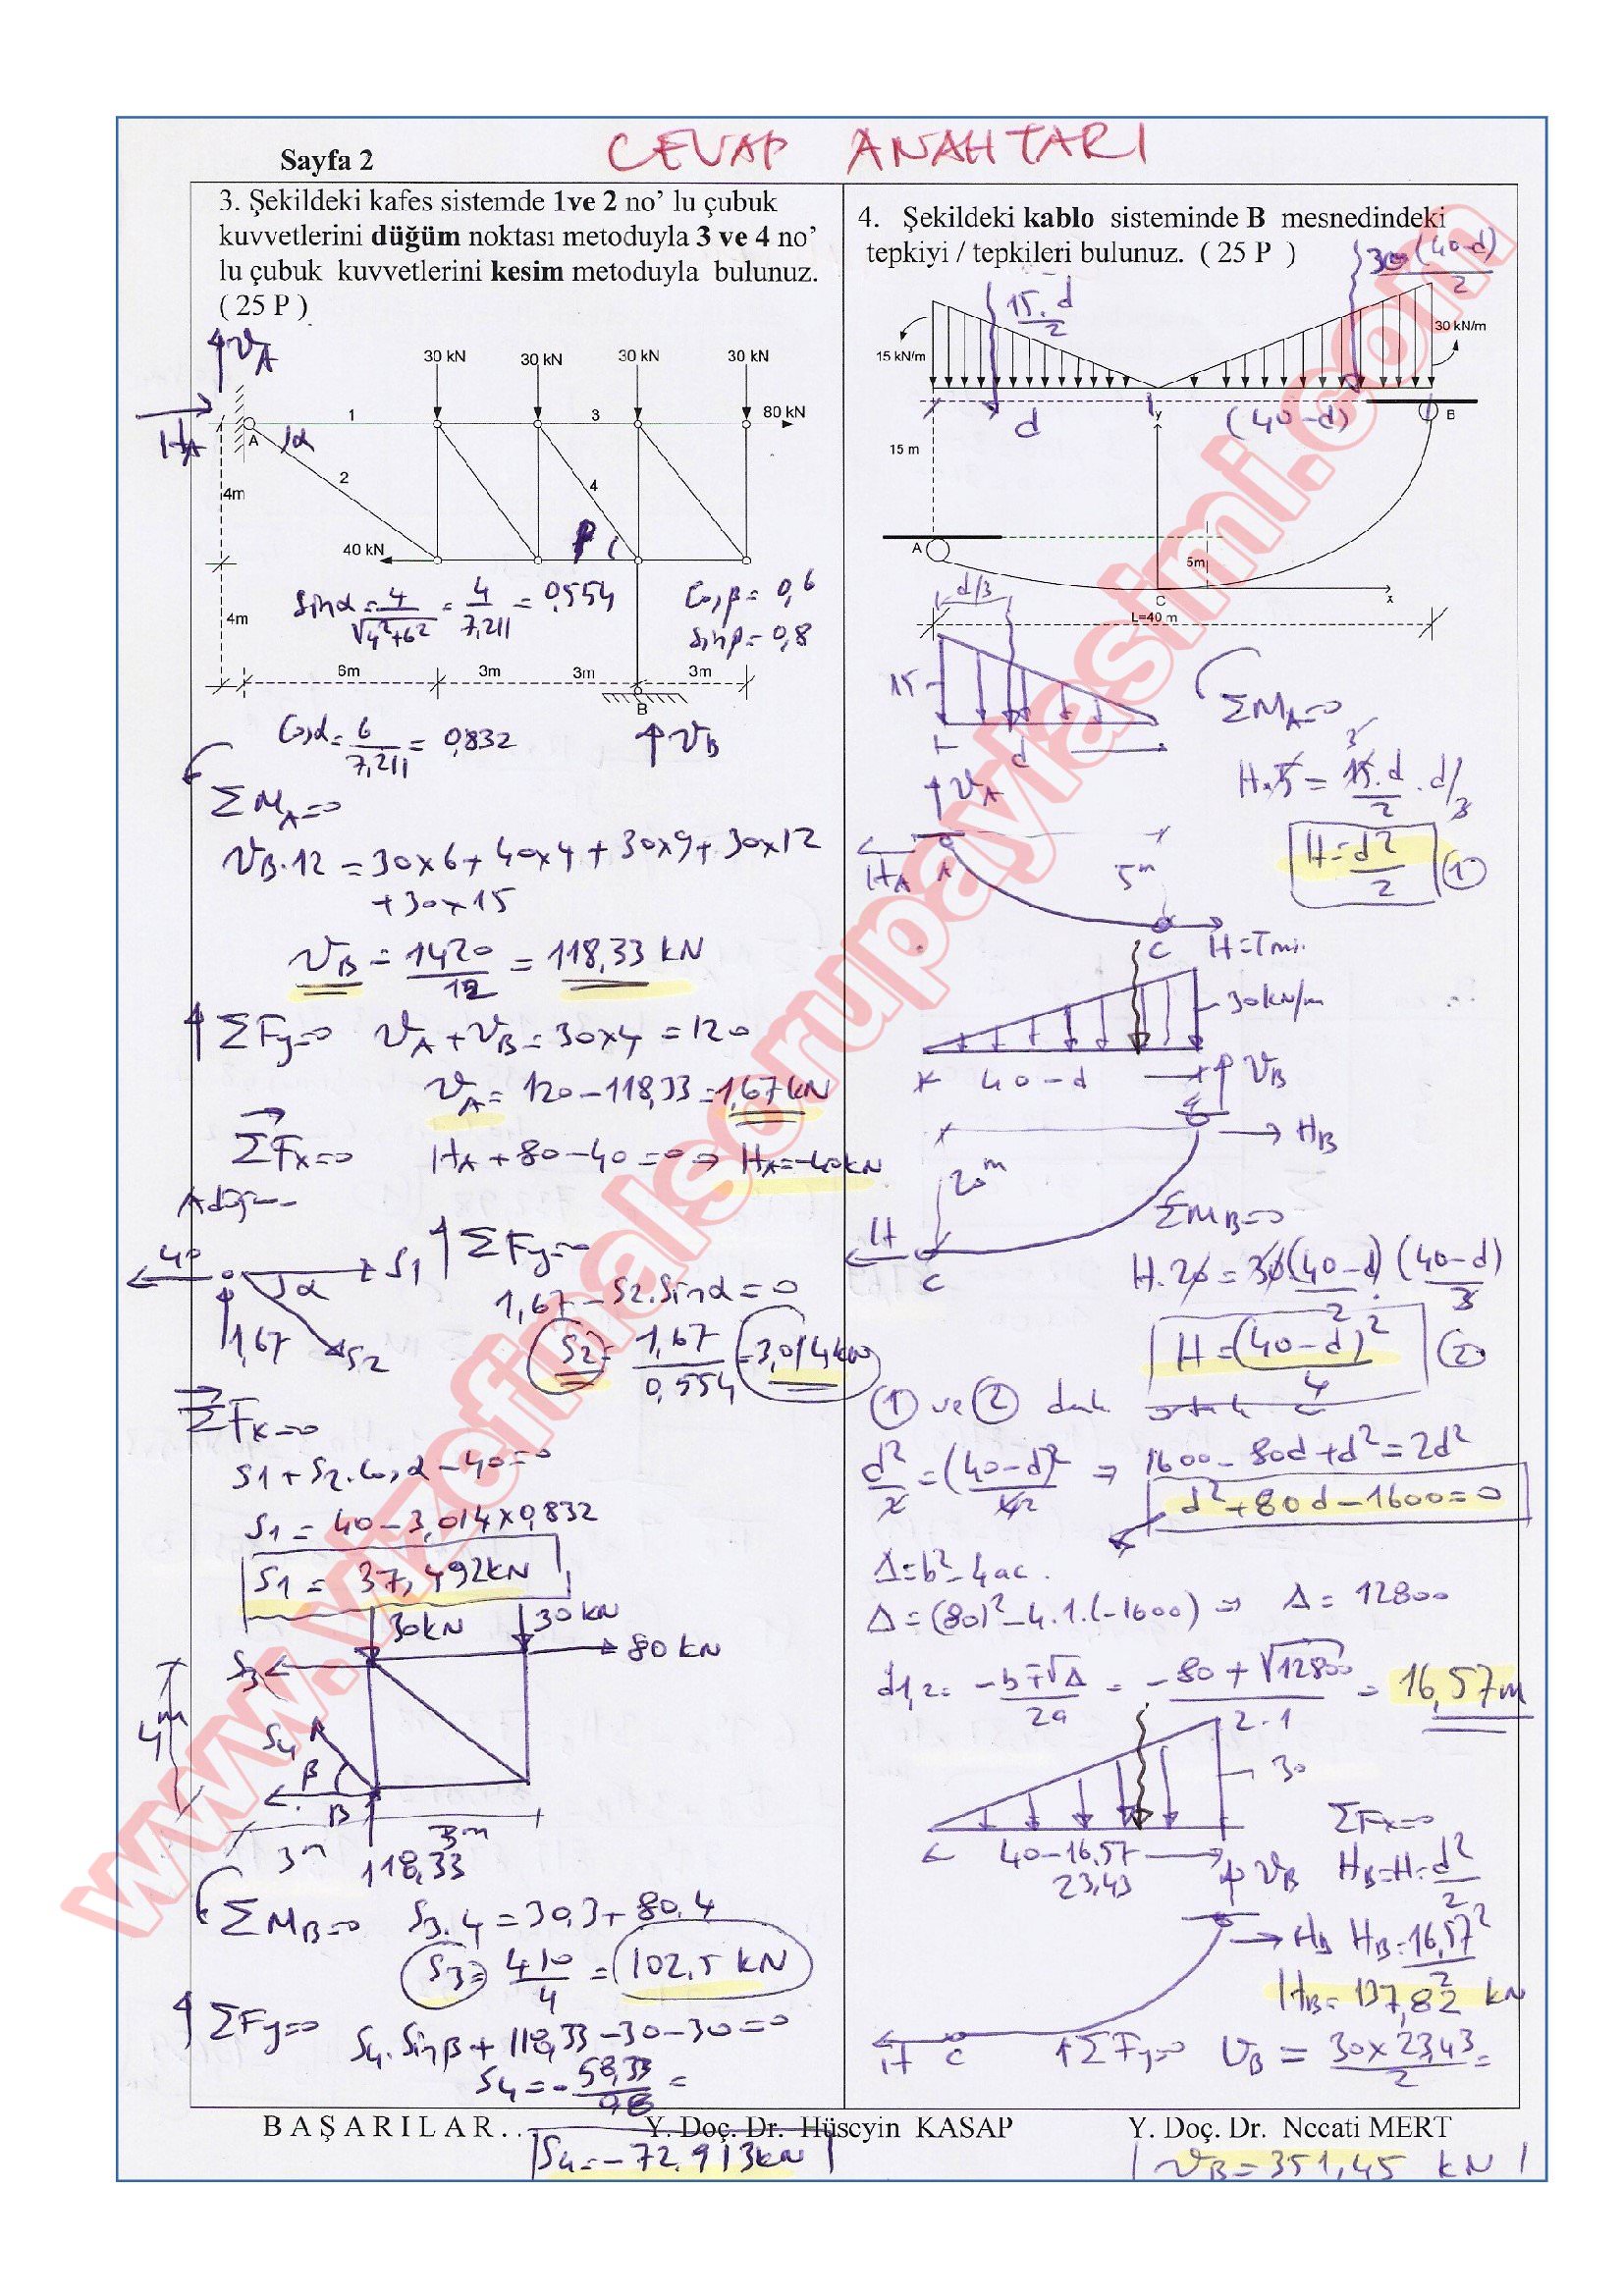 CEVAP ANAHTARI
Sayfa 2
3. Şekildeki kafes sistemde 1ve 2 no' lu çubuk
kuvvetlerini düğüm noktası metoduyla 3 ve 4 no'
lu çubuk kuvvetlerini kesim metoduyla bulunuz.
( 25 P )
VA
HA
30 kN 30 kN 30 kN 30 kN
1 3 80 kN
A α
2
4
4m
40 kN
β
Sinα = 4/√4²+6² = 4/7,211 = 0,554
Cosβ = 0,6
Sinβ = 0,8
4m
6m 3m 3m 3m
B
VB
Cosα = 6/7,211 = 0,832
ΣMA=0
VB.12 = 30x6+40x4+30x9+30x12
+30x15
VB = 1420/12 = 118,33 kN
ΣFy=0 VA+VB=30x4=120
VA=120-118,33=1,67kN
ΣFx=0 HA+80-40=0 ⇒ HA=-40kN
40 S1 ΣFy=0
α
1,67 S2
1,67-S2.Sinα=0
S2=1,67/0,554=3,014kN
ΣFx=0
S1+S2.Cosα-40=0
S1=40-3,014x0,832
S1= 37,492kN
30kN 30kN
S3 80 kN
4m
S4
β
B
3m 3m
118,33
ΣMB=0 S3.4=30.3+80.4
S3=410/4=102,5 kN
ΣFy=0 S4.Sinβ+118,33-30-30=0
S4=-58,33/0,8=
S4=-72,913kN
4. Şekildeki kablo sisteminde B mesnedindeki
tepkiyi / tepkileri bulunuz. ( 25 P )
15.d/2
30(40-d)/2
15 kN/m
30 kN/m
d
y
(40-d)
B
15 m
A
5m
d/3
C
x
L=40 m
15
d
ΣMA=0
H.5=15.d/2.d/3
VA
HA A
5m
H=d²/2 (1)
C H=Tmin
30kN/m
40-d VB
HB
20m
ΣMB=0
H
C
H.20=30(40-d)/2.(40-d)/3
H=(40-d)²/4 (2)
(1) ve (2) den
d²/2=(40-d)²/4 ⇒ 1600-80d+d²=2d²
d²+80d-1600=0
Δ=b²-4ac
Δ=(80)²-4.1.(-1600) ⇒ Δ=12800
d1,2=-b∓√Δ/2a=-80+√12800/2.1=16,57m
30
ΣFx=0
40-16,57
23,43
VB HB=H=d²/2
HB HB=16,57²/2
HB=137,82 kN
H C
ΣFy=0 VB=30x23,43/2=
VB=351,45 kN
BAŞARILAR.. Y. Doç. Dr. Hüseyin KASAP Y. Doç. Dr. Necati MERT
www.vizefinalsorupaylasimi.com